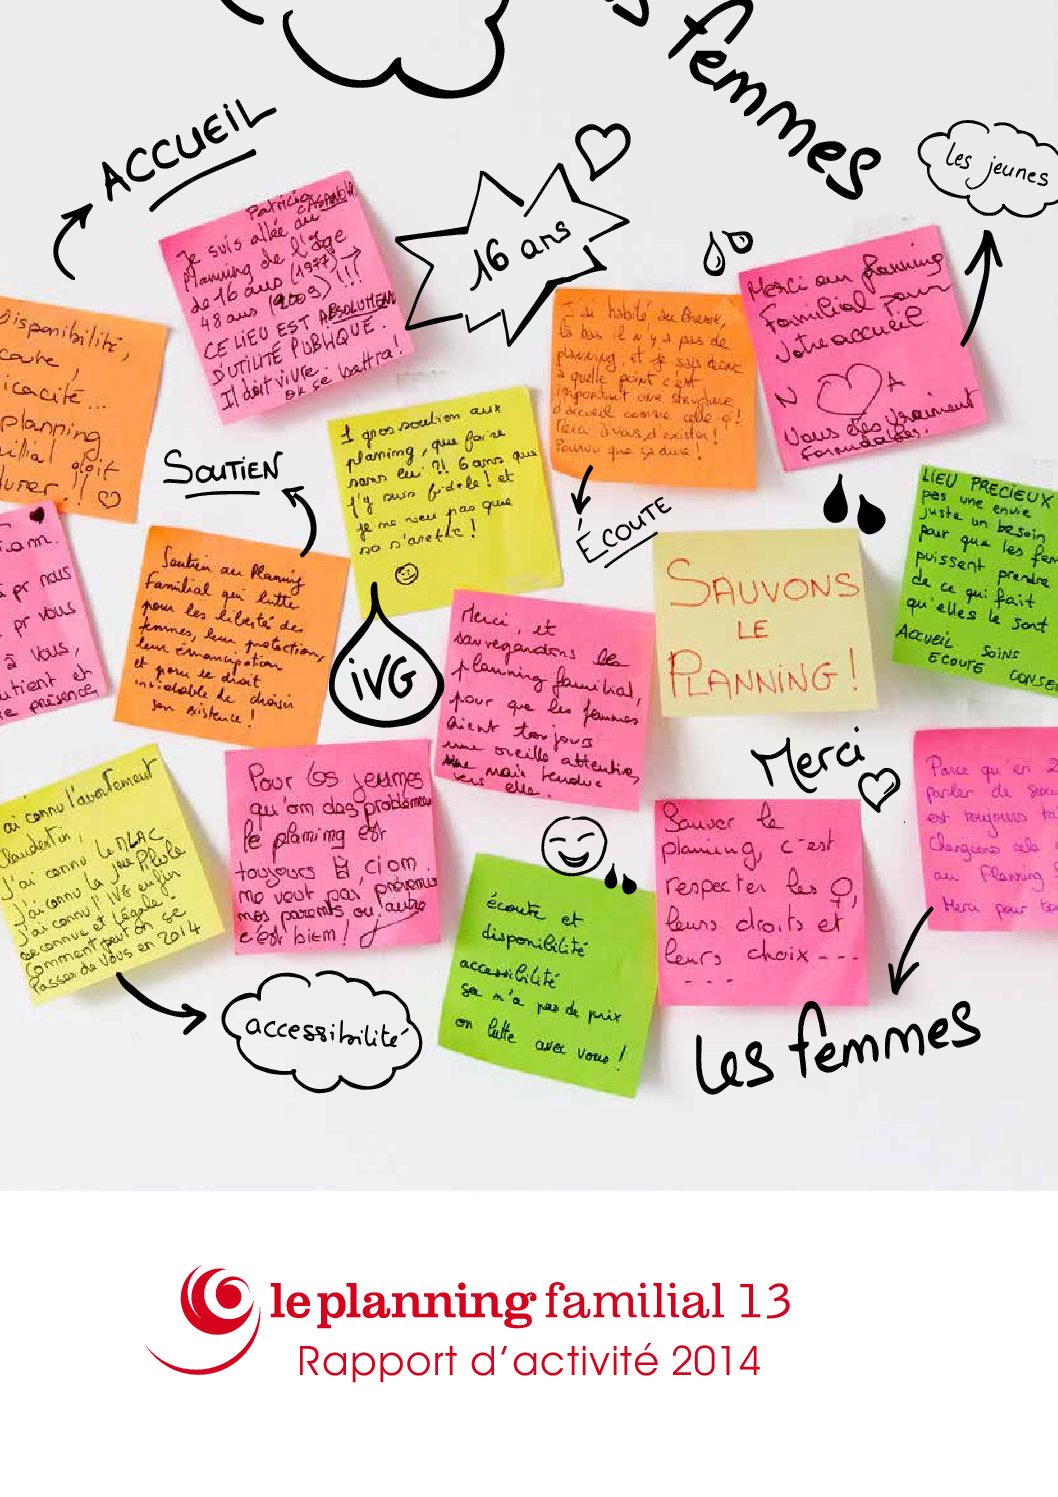 femmes
les jeunes
ACCUEIL
16 ans
Patricia
Je suis allée au
Planning de l'âge
de 16 ans (1977)
48 ans (2009) !!!
CE LIEU EST ABSOLUMENT
D'UTILITÉ PUBLIQUE.
Il doit vivre
on se battra!
Disponibilité,
planning
durer !!
J'ai habité au Brésil,
là bas il n'y a pas de
planning, et je sais donc
à quelle point c'est
important une structure
d'accueil comme celle-çi!
Merci à vous d'exister!
Pourvu que ça dure!
Merci au planning
Familial pour
votre accueil.
N A
Vous êtes vraiment
formidables.
SOUTIEN
1 gros soutien aux
planning, que faire
sans lui ?! 6 ans que
j'y suis fidèle! et
je ne veu pas que
sa s'arette!
ÉCOUTE
LIEU PRECIEUX
pas une envie
juste un besoin
pour que les fem
puissent prendre
de ce qui fait
qu'elles le sont
ACCUEIL SOINS
ECOUTE CONSE
pr nous
pr vous
à vous,
utient et
e présence
Soutien au Planning
Familial qui lutte
pour les libertés des
femmes, leur protection,
leur émancipation
et pour le droit
inviolable de choisir
son existence!
iVG
Merci, et
sauvegardons les
planning familial,
pour que les femmes
aient toujours
une oreille attentive,
une main tendue
vers elle.
SAUVONS
LE
PLANNING!
Merci
ai connu l'avortement
clandestin,
J'ai connu le MLAC
J'ai connu la jeu Pilule
J'ai connu l'IVG enfin
reconnue et légale.
Comment peut on se
passer de vous en 2014
Pour les jeunes
qu'om das problèmes
le planing est
toujours là, ci om
me veut pas, prévenus
nos parents ou l'autre
c'est biem!
écoute et
disponibilité
accessibilité
sa n'a pas de prix
on lutte avec vous!
Sauver le
planning, c'est
respecter les ♀,
leurs droits et
leurs choix ---
----
Parce qu'en 2
parler de sexu
est toujours ta
Changeons cela
au Planning
Merci pour tou
accessibilité
Les femmes
le planning familial 13
Rapport d'activité 2014